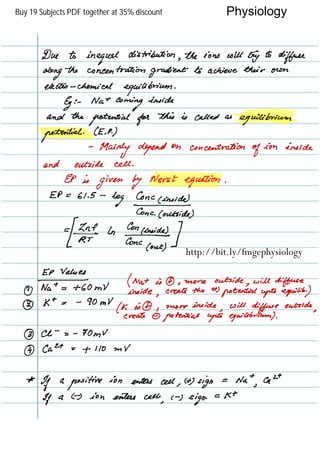 Buy 19 Subjects PDF together at 35% discount
Physiology
Due to inequal distribution, the ions will try to diffuse
along the concentration gradient to achieve their own
electro-chemical equilibrium.
Eg:- Na+ coming inside
and the potential for this is called as equilibrium
potential. (E.P.)
- Mainly depend on concentration of ion inside
and outside cell.
EP is given by Nerst equation.
EP = 61.5 - log Conc (inside)
Conc. (outside)
= [ZnF / RT ln Con (inside) / Conc (out)]
http://bit.ly/fmgephysiology
EP Values
① Na+ = +60 mV (Na+ is ⊕, more outside, will diffuse
inside, create the ⊕) potential upto equilib.)
② K+ = - 90 mV (K is ⊕, more inside, will diffuse outside,
create ⊖ potential upto equilibrium).
③ Cl- = - 70mV
④ Ca2+ = + 110 mV
* If a positive ion enters cell, (+) sign = Na+, Ca2+
If a (-) ion enters cell, (-) sign = K+